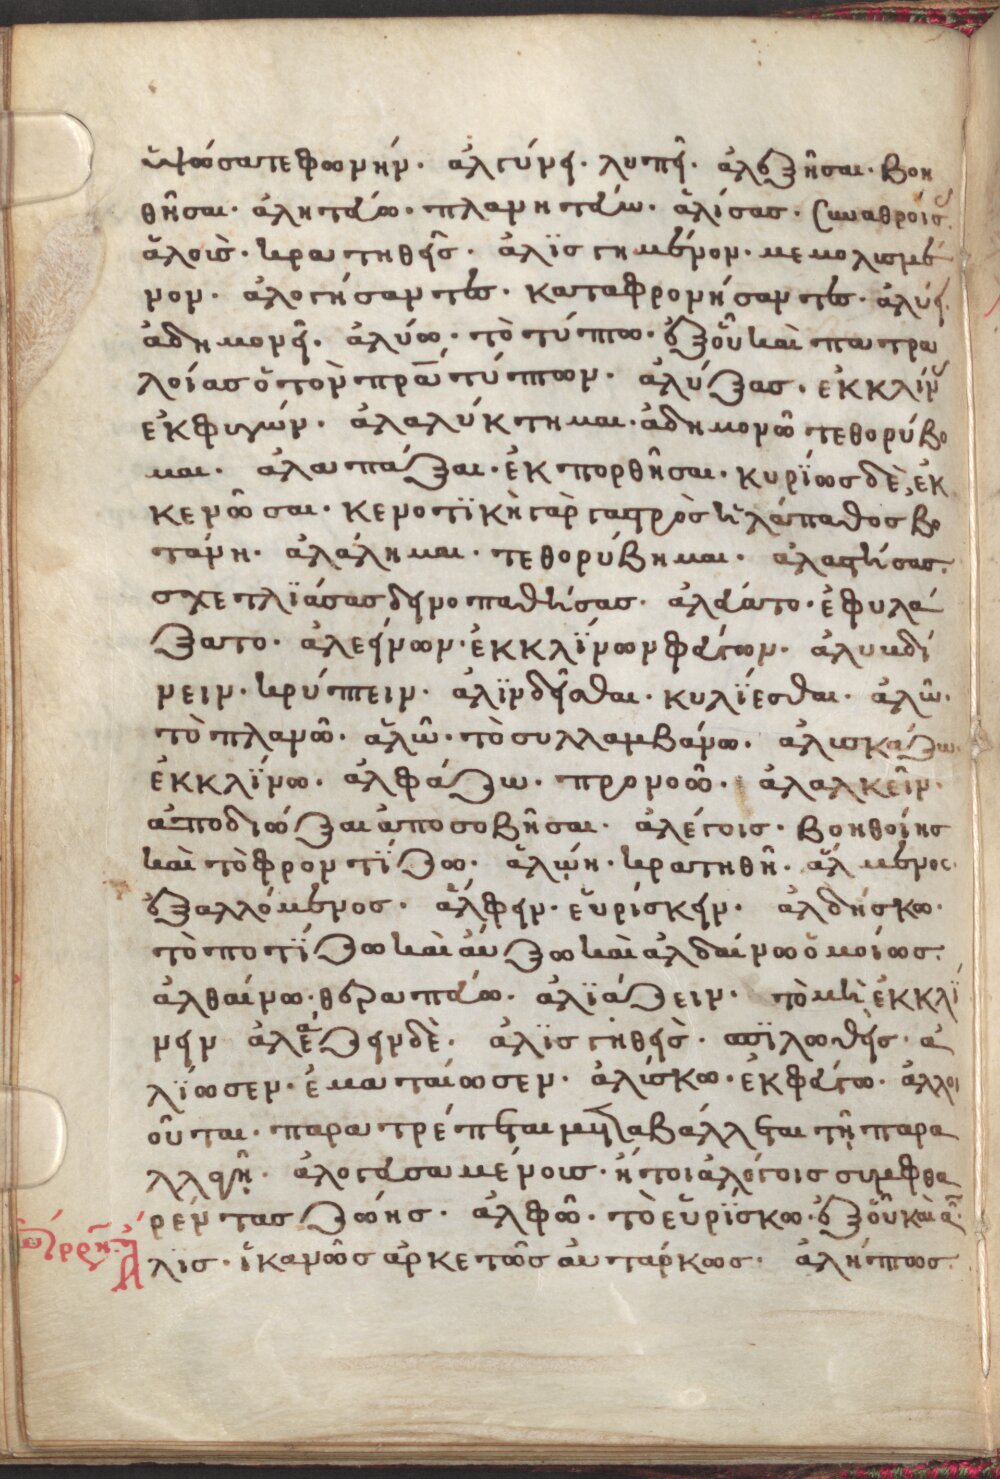 ὑψώσατε φωνήν. ἀλγύνει. λυπεῖ. ἀλεξῆσαι. βοη
θῆσαι. ἀλητεύω. πλανητεύω. ἁλίσας. συναθροίσ
ἁλοὶς. κρατηθεῖς. ἀλϊσγημένον. μεμολισμέ
νον. ἀλογήσαντες. καταφρονήσαντες. ἀλύει.
ἀδημονεῖ. ἀλύω. τὸ τύπτω. ἐξοὗ καὶ πατρα
λοίας ὁ τὸν πρα τύπτων. ἀλύξας. ἐκκλίν
ἐκφυγών. ἀλαλύκτημαι. ἀδημονῶ τεθορύβη
μαι. ἀλαπάξαι. ἐκπορθῆσαι. κυρίως δὲ, ἐκ
κενῶσαι. κενοτϊκὴ γὰρ γαστρὸς ἡ λάπαθος βο
τάνη. ἀλάλημαι. τεθορύβημαι. ἀλαστήσας.
σχετλϊάσας δεινοπαθήσας. ἀλεύατο. ἐφυλά
ξατο. ἀλεείνων. ἐκκλΐνων φεύγων. ἀλυκδί
νειν. κρύπτειν. ἀλϊνδεῖσθαι. κυλΐεσθαι. ἀλῶ.
τὸ πλανῶ. ἁλῶ. τὸ συλλαμβάνω. ἀλισκάζω.
ἐκκλΐνω. ἀλφάζω. προνοῶ. ἀλαλκεῖν.
ἀποδιώξαι ἀποσοβῆσαι. ἀλέγοις. βοηθοίης
καὶ τὸ φροντΐζω. ἁλώῃ. κρατηθῆ. ἁλμενος.
ἐξαλλόμενος. ἄλφειν. εὑρίσκειν. ἀλδήσκω.
τὸ ποτΐζω καὶ αὔξω καὶ ἀλδαίνω ὁμοίως.
ἀλθαίνω. θεραπεύω. ἀλϊάζειν. τὸ μὴ ἐκκλΐ
νειν ἀλεάζειν δὲ. ἀλϊσγηθεὶς. σπϊλωθεὶς. ἀ
λΐωσεν. ἐματαίωσεν. ἀλίσκω. ἐκφεύγω. ἀλλοι
οῦται. παρατρέπεται μεταβάλλεται τῇ παρα
λλαγῇ. ἀλογευσαμένοις. ἤτοι ἀλόγοις συμφθα
ρέντας ζώης. ἀλφῶ. τὸ εὑρΐσκω. ἐξοὗ καὶ ἀ
λις. ἱκανῶς ἀρκετῶς αὐτάρκως. ἀλήπτως.